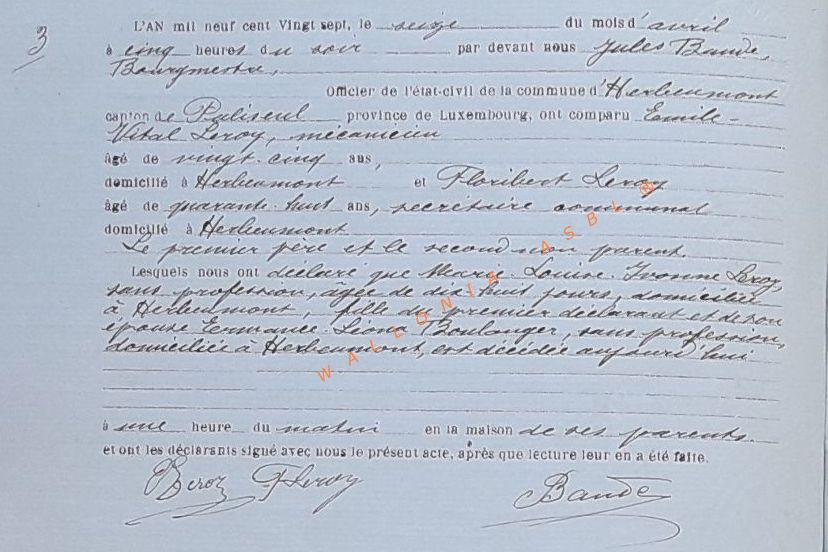 3
L'AN mil neuf cent Vingt sept, le seize du mois d'avril
à cinq heures du soir par devant nous Jules Baude,
Bourgmestre,
Officier de l'état-civil de la commune d'Herbeumont
canton de Paliseul province de Luxembourg, ont comparu Emile-
Vital Leroy, mécanicien
âgé de vingt-cinq ans,
domicilié à Herbeumont et Floribert Leroy
âgé de quarante-huit ans, secrétaire communal
domicilié à Herbeumont
Le premier père et le second non parent.
Lesquels nous ont déclaré que Marie-Louise-Yvonne Leroy
sans profession, âgée de dix huit jours, domiciliée
à Herbeumont, fille du premier déclarant et de son
épouse Ermance-Léona Boulanger, sans profession,
domiciliée à Herbeumont, est décédée aujourd'hui
à une heure du matin en la maison de ses parents.
et ont les déclarants signé avec nous le présent acte, après que lecture leur en a été faite.
Leroy FLeroy Baude
WALLONIA ASBL ®